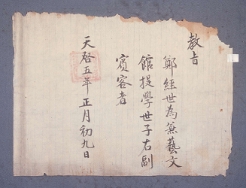 教旨
鄭經世爲兼藝文
館提學世子右副
賓客者
天啓五年正月初九日